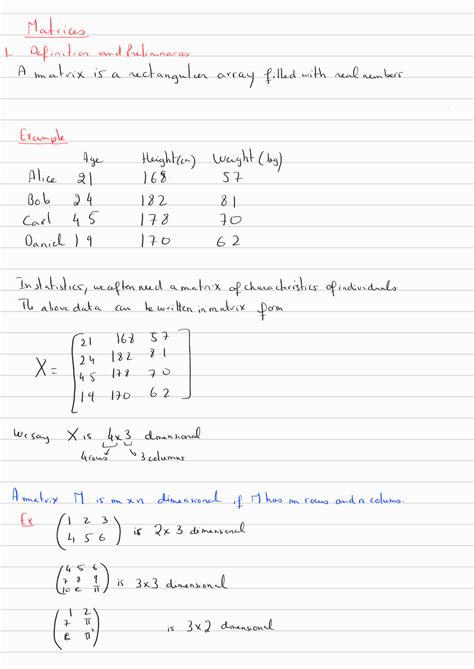 Matrices
1. Definition and Preliminaries
A matrix is a rectangular array filled with real numbers
Example
Age Height(cm) Weight (kg)
Alice 21 168 57
Bob 24 182 81
Carl 45 178 70
Daniel 19 170 62
In statistics, we often need a matrix of characteristics of individuals
The above data can be written in matrix form
X = [21 168 57
24 182 81
45 178 70
19 170 62]
We say X is 4x3 dimensional
4 rows 3 columns
A matrix M is m x n dimensional if M has m rows and n colums.
Ex (1 2 3
4 5 6) is 2x3 dimensional
(4 5 6
7 8 9
10 e π) is 3x3 dimensional
(1 2
7 π
e π) is 3x2 dimensional